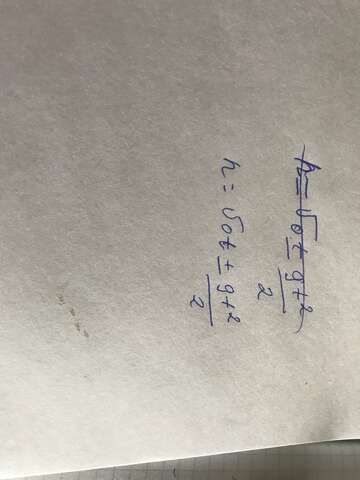 h = V₀t ± gt²/2
h = V₀t ± gt²/2